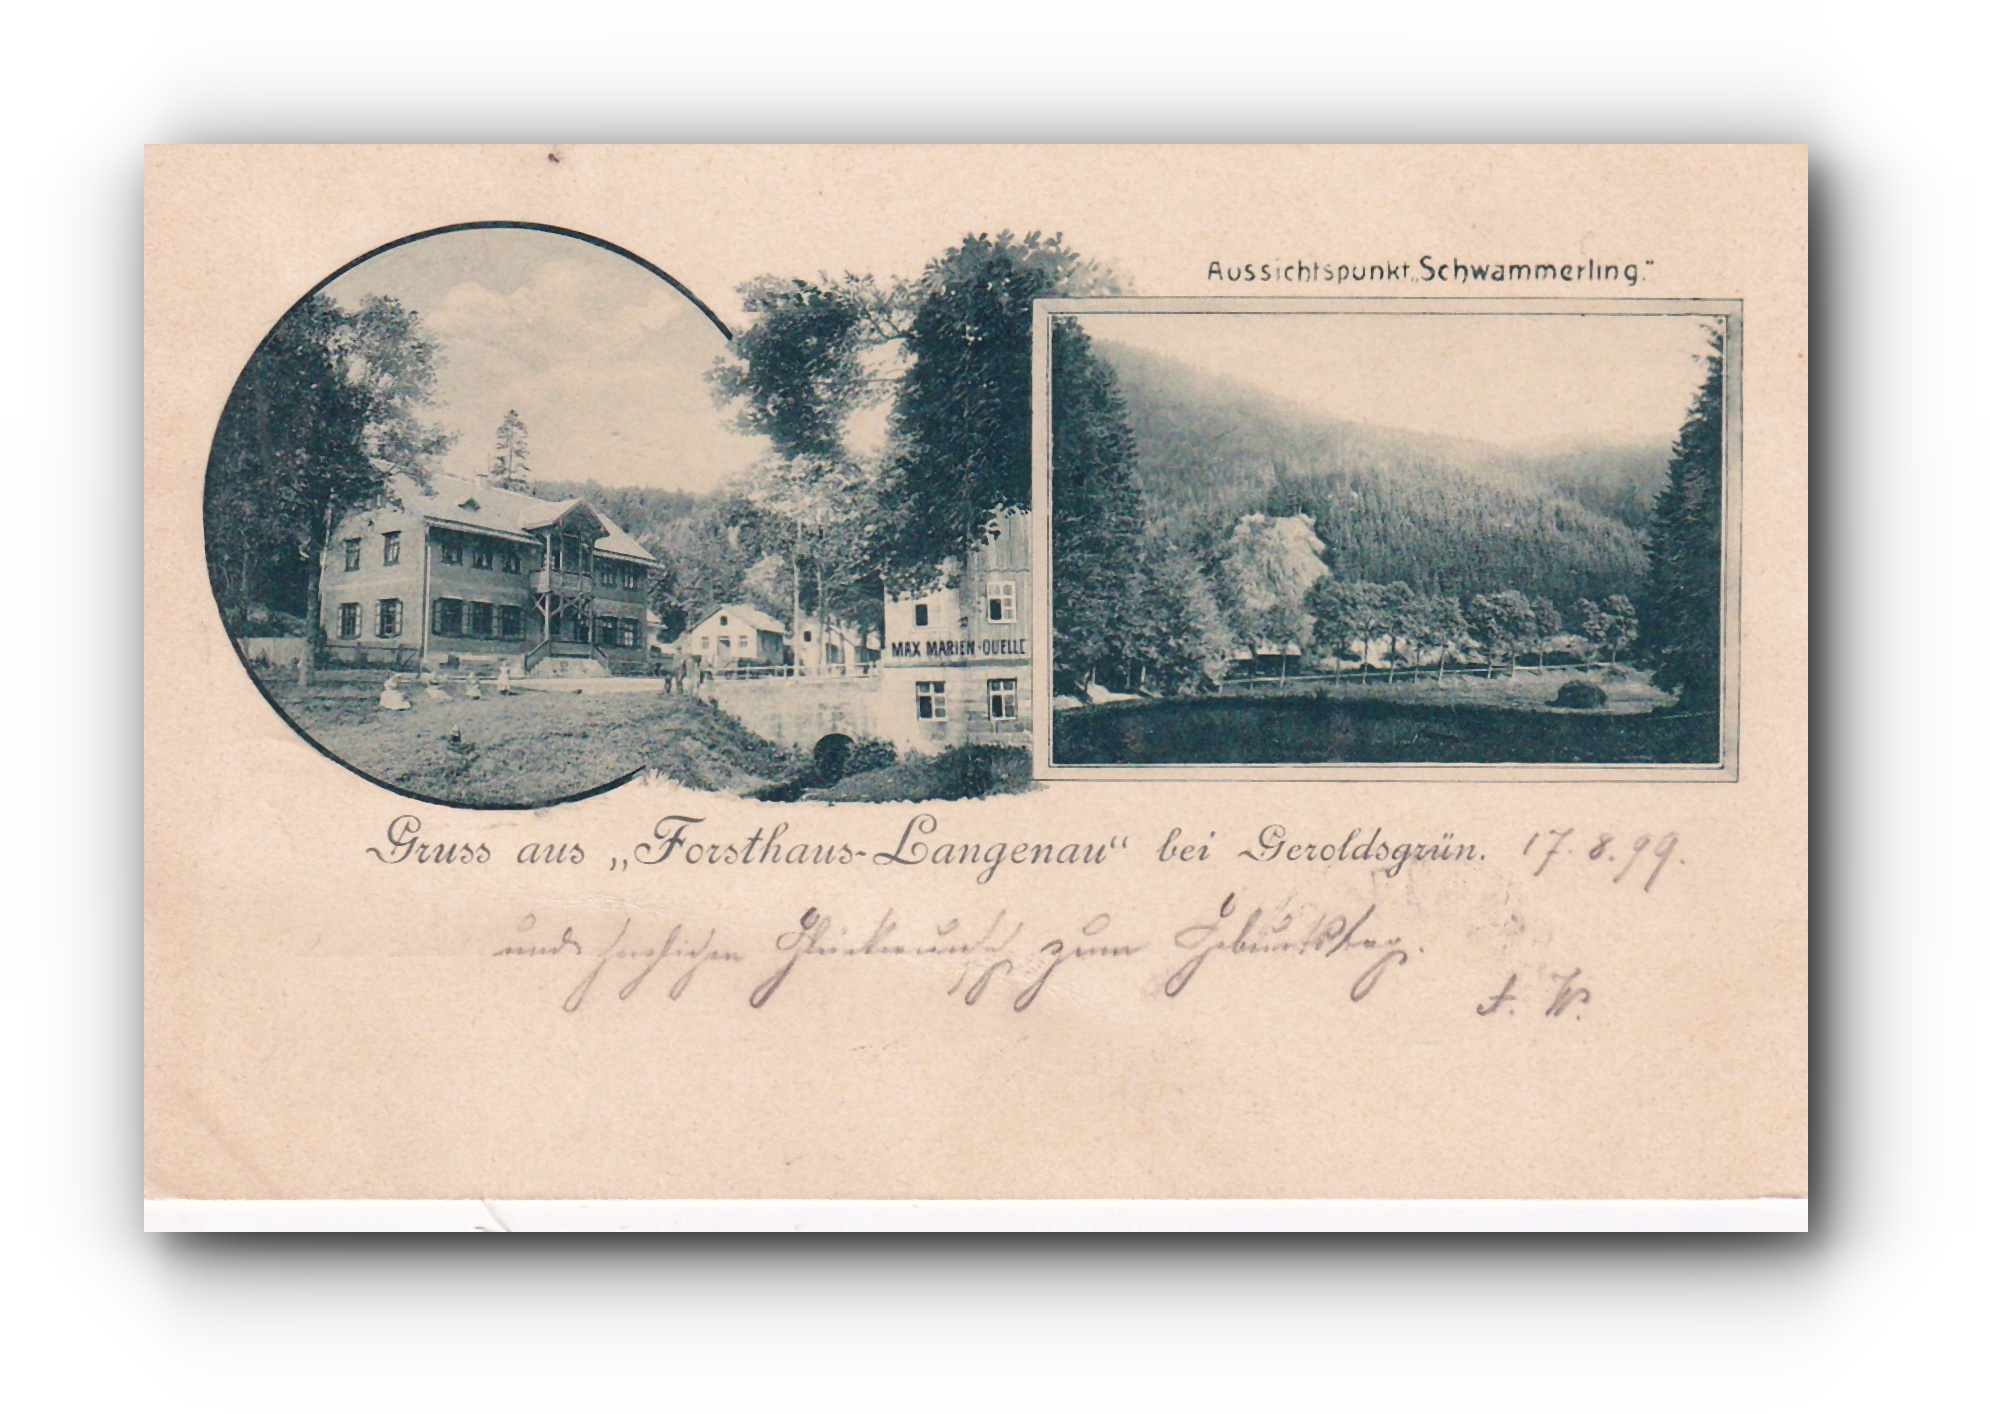 Aussichtspunkt „Schwammerling."
MAX MARIEN-QUELLE
Gruss aus „Forsthaus-Langenau“ bei Geroldsgrün. 17. 8. 99.
und herzlichen Glückwunsch zum Geburtstag.
A. W.